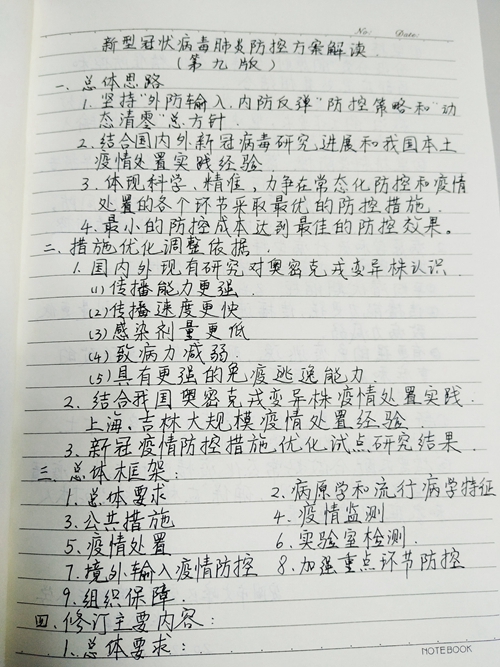 No:    Date:
新型冠状病毒肺炎防控方案解读
（第九版）
一、总体思路
1. 坚持“外防输入、内防反弹”防控策略和“动
态清零”总方针.
2. 结合国内外新冠病毒研究进展和我国本土
疫情处置实践经验.
3. 体现科学、精准，力争在常态化防控和疫情
处置的各个环节采取最优的防控措施.
4. 最小的防控成本达到最佳的防控效果。
二、措施优化调整依据.
1. 国内外现有研究对奥密克戎变异株认识.
(1) 传播能力更强.
(2) 传播速度更快
(3) 感染剂量更低
(4) 致病力减弱.
(5) 具有更强的免疫逃逸能力.
2. 结合我国奥密克戎变异株疫情处置实践.
上海、吉林大规模疫情处置经验.
3. 新冠疫情防控措施优化试点研究结果.
三、总体框架：
1. 总体要求    2. 病原学和流行病学特征
3. 公共措施    4. 疫情监测
5. 疫情处置    6. 实验室检测.
7. 境外输入疫情防控    8. 加强重点环节防控
9. 组织保障.
四、修订主要内容：
1. 总体要求：
NOTEBOOK